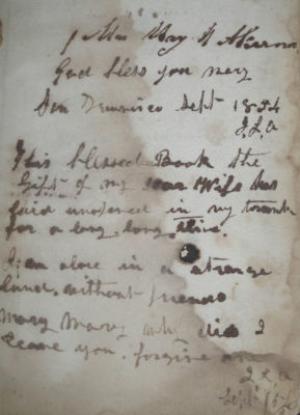 God bless you mary
San Francisco Sept 1854
J. L. A
This blessed Book the
Gift of my Wife has
laid unopened in my trunk
for a long long time.
I am alone in a strange
land. without friends
Mary Mary why did I
leave you. forgive me
J. L. A
Sept